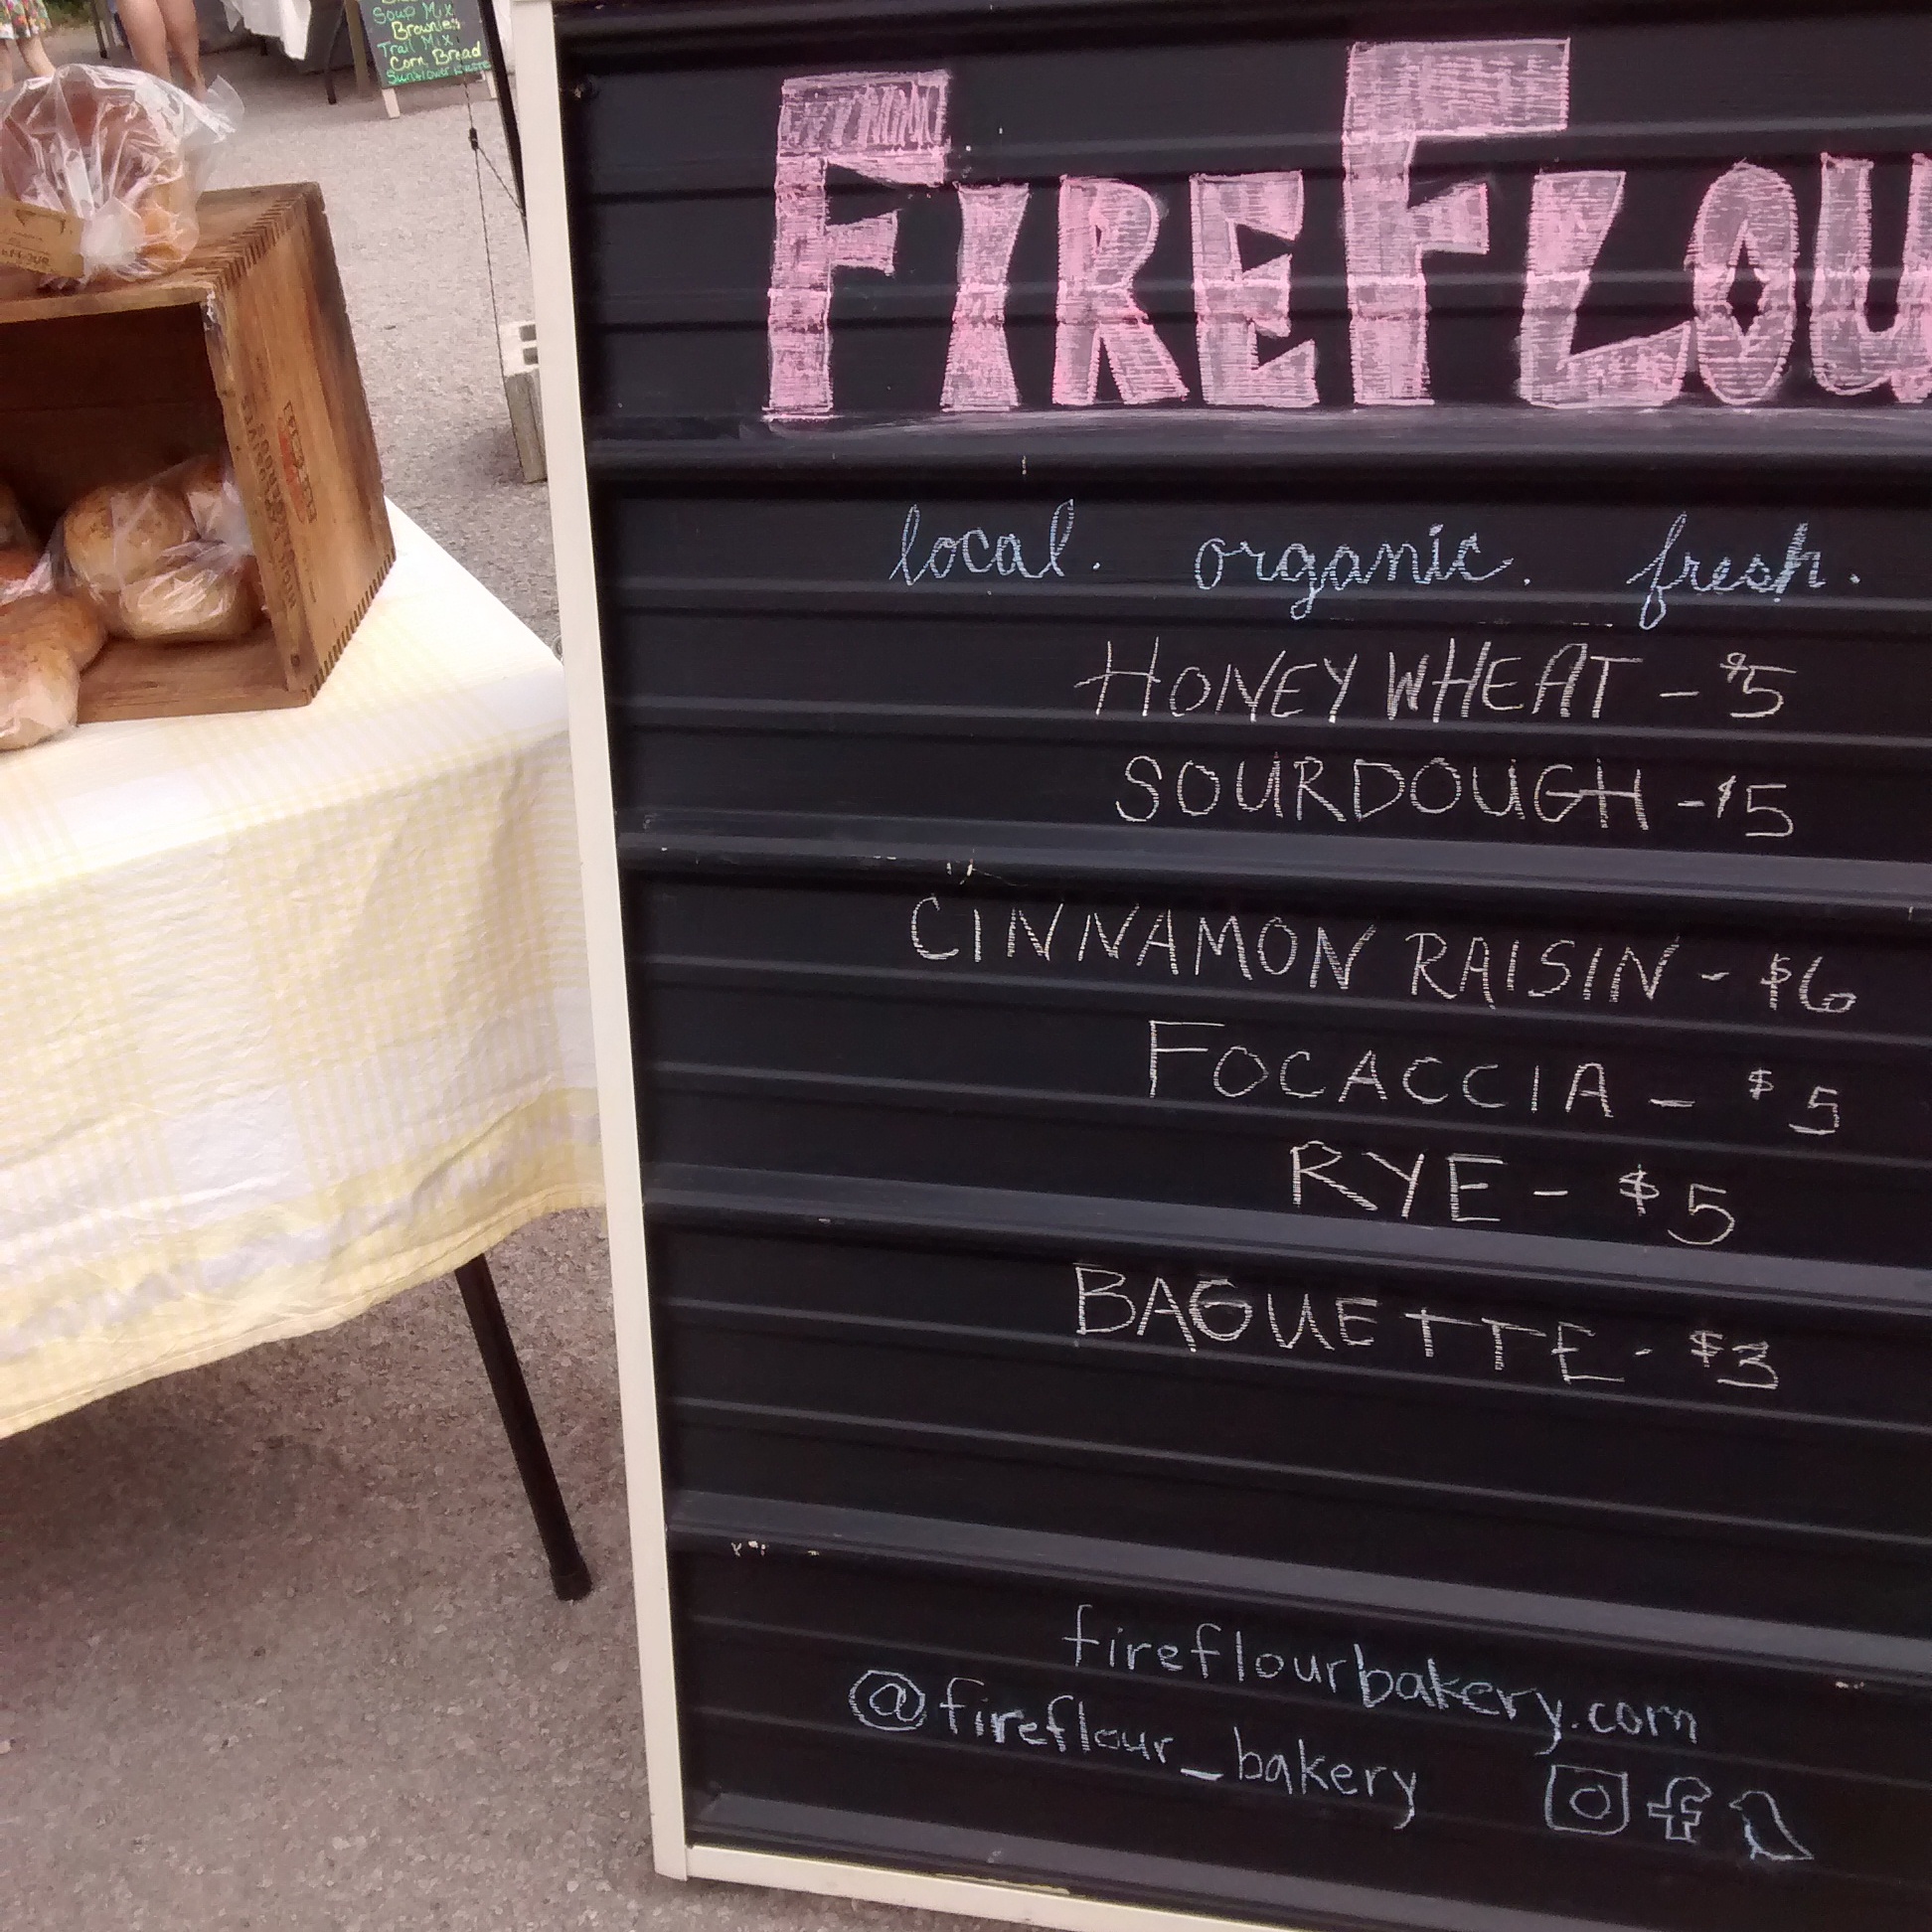 Soup Mix
Brownies
Trail Mix
Corn Bread
FIREFLOU
local. organic. fresh.
HONEY WHEAT - $5
SOURDOUGH - $5
CINNAMON RAISIN - $6
FOCACCIA - $5
RYE - $5
BAGUETTE - $3
fireflourbakery.com
@fireflour_bakery